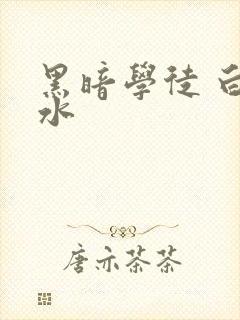 黑暗學徒 白
水
唐亦荼荼